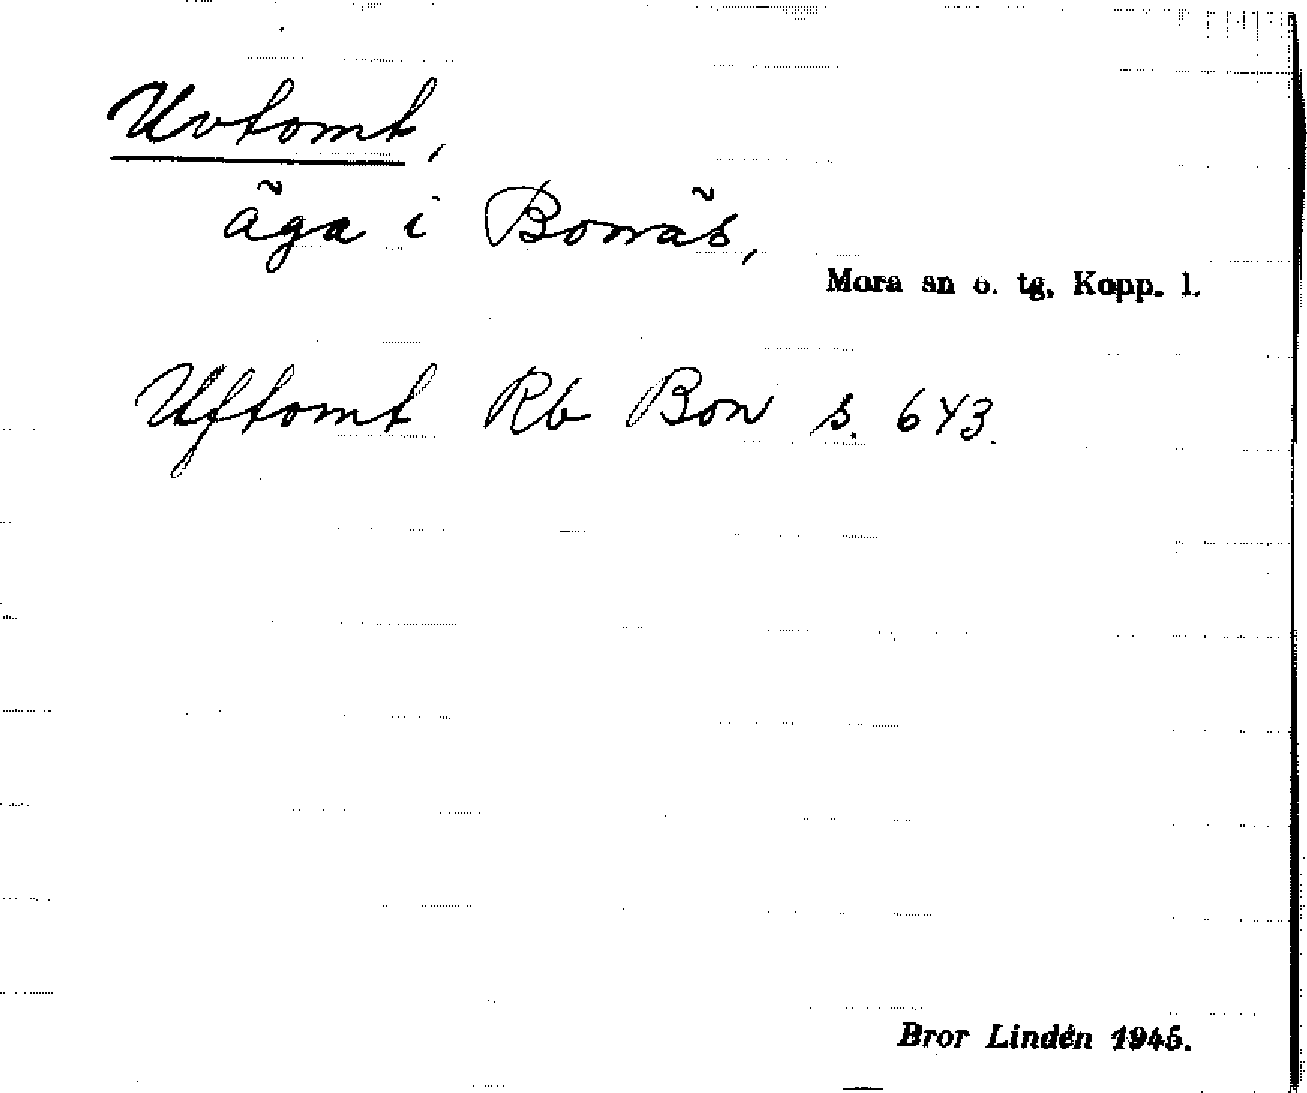 Uvtomt,
äga i Bonäs,
Mora sn o. tg, Kopp. l.
Uftomt Rb Bon s. 643.
Bror Lindén 1945.